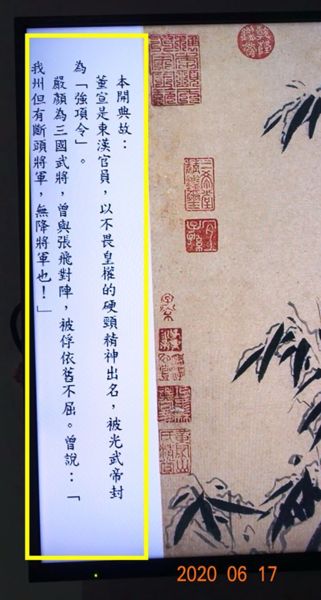 本開典故：
董宣是東漢官員，以不畏皇權的硬頸精神出名，被光武帝封
為「強項令」。
嚴顏為三國武將，曾與張飛對陣，被俘依舊不屈。曾說：「
我州但有斷頭將軍，無降將軍也！」
三希堂精鑑璽
宜子孫
2020 06 17